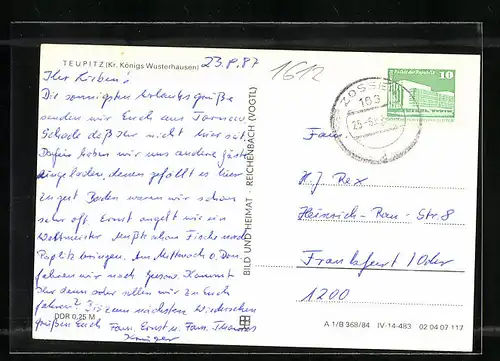 TEUPITZ (Kr. Königs Wusterhausen) 23.8.87
1612
Ihr Lieben!
Die sonnigsten Urlaubsgrüße
senden wir Euch aus Tornow
Schade daß Ihr nicht hier seid.
Dafür haben wir uns andere Gäste
eingeladen, denen gefällt es hier
zu gut. Baden waren wir schon
sehr oft. Ernst angelt wie ein
Weltmeister. Mußt schon Fische nach
bringen. Am Mittwoch o. Don.
fahren wir nach Kommt
Ihr dann oder sollen wir zu Euch
fahren? Bis zum nächsten Wiedersehen
grüßen Euch Fam. Ernst u. Fam. Thomas
Krüger
DDR 0,25 M
BILD UND HEIMAT · REICHENBACH (VOGTL)
ZOSSEN
163
Palast der Republik
10
DDR
Fam.
H.J Rex
Heinrich-Rau-Str. 8
Frankfurt/Oder
1200
A 1/B 368/84 IV-14-483 02 04 07 117